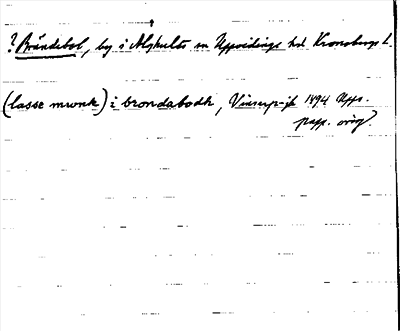 ? Brändebol, by i Älghults sn Uppvidinge hd Kronobergs l.
(lasse mwnk) i brondabodh, Vinserp-jb 1494 Upps.
papp. orig.